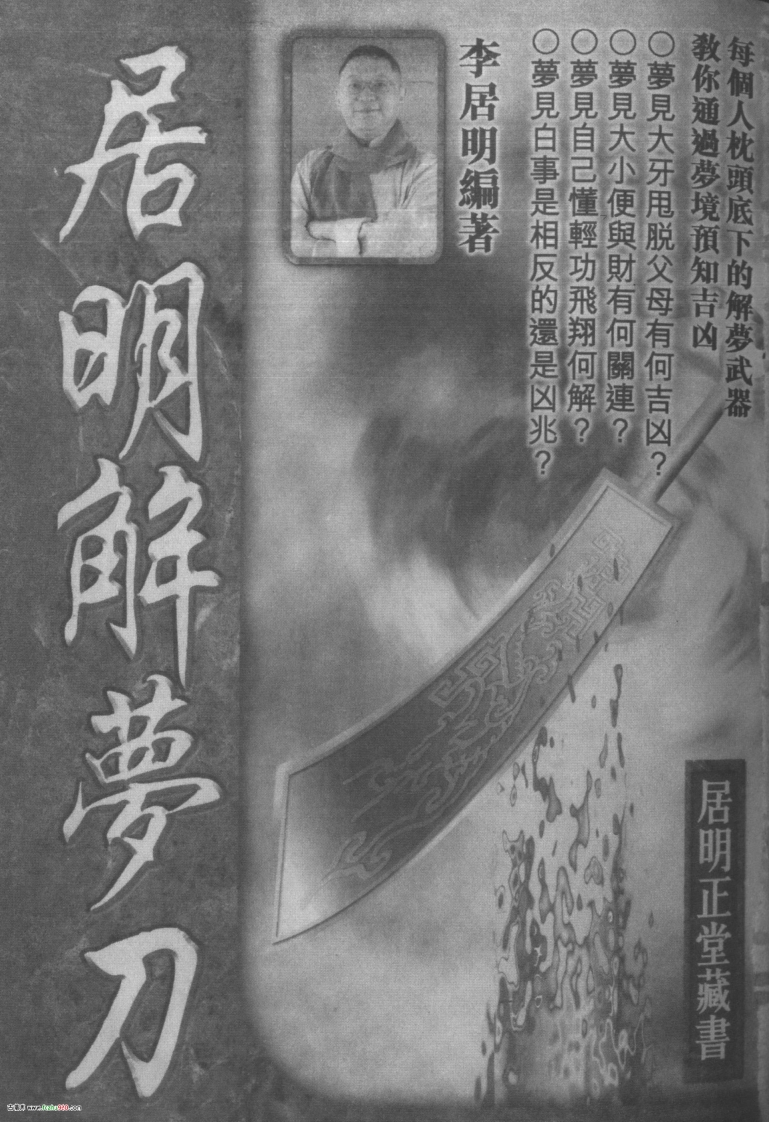 每個人枕頭底下的解夢武器
教你通過夢境預知吉凶
○夢見大牙甩脫父母有何吉凶?
○夢見大小便與財有何關連?
○夢見自己懂輕功飛翔何解?
○夢見白事是相反的還是凶兆?
李居明編著
居明解夢刀
居明正堂藏書